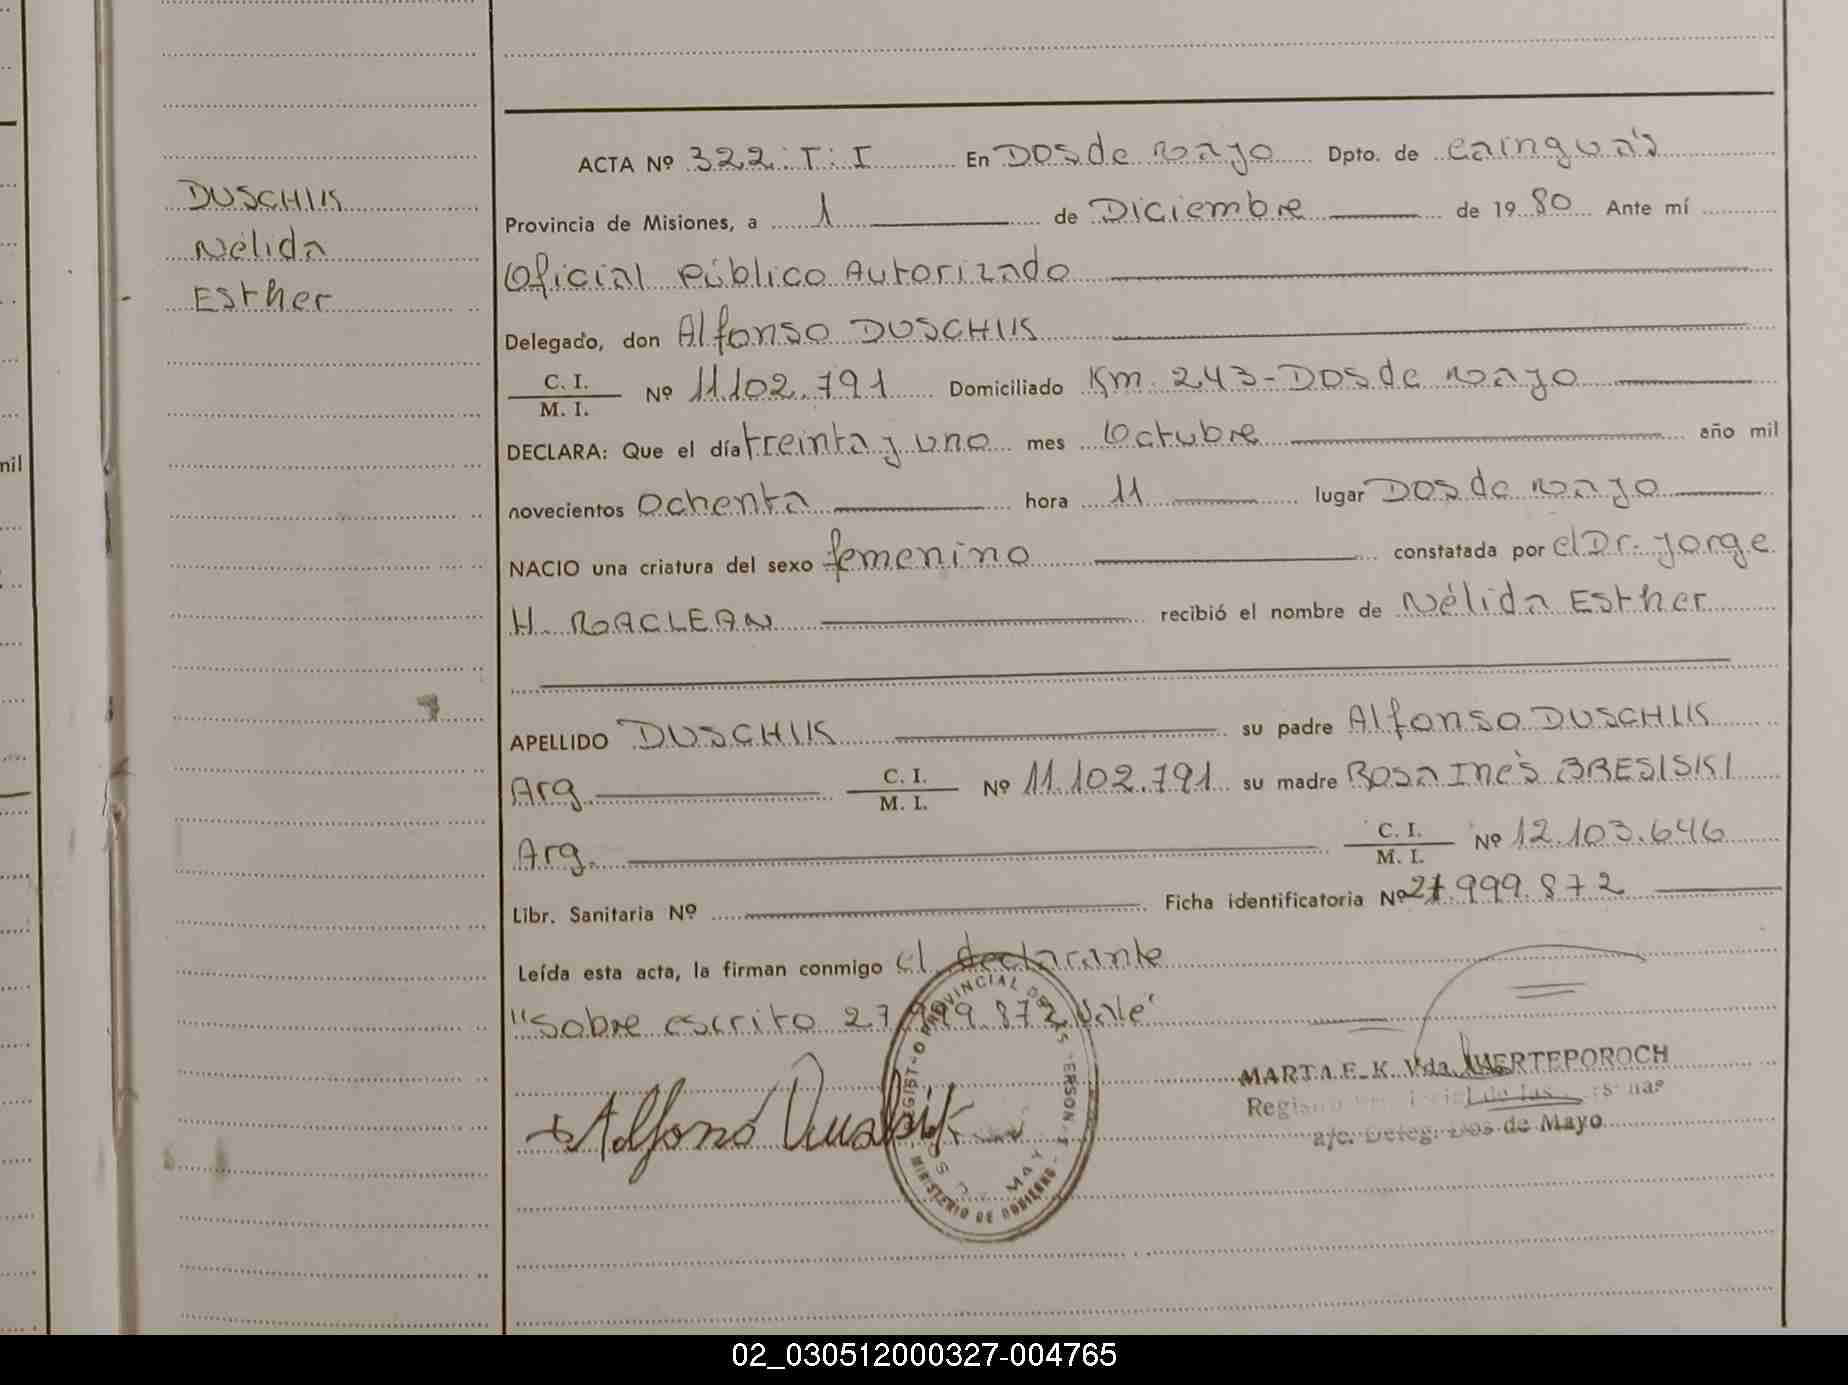 nil
DUSCHIK
Nélida
Esther
ACTA Nº 322. T. I En Dos de Mayo Dpto. de Cainguás
Provincia de Misiones, a 1 de Diciembre de 1980 Ante mí
Oficial Público Autorizado
Delegado, don Alfonso DUSCHIK
C. I.
M. I. Nº 11.102.791 Domiciliado Km. 243-Dos de Mayo
DECLARA: Que el día treinta y uno mes Octubre año mil
novecientos Ochenta hora 11 lugar Dos de Mayo
NACIO una criatura del sexo femenino constatada por el Dr. Jorge
H. MACLEAN recibió el nombre de Nélida Esther
APELLIDO DUSCHIK su padre Alfonso DUSCHIK
Arg. C. I. M. I. Nº 11.102.791 su madre Rosa Inés BRESISKI
Arg. C. I. M. I. Nº 12.103.646
Libr. Sanitaria Nº Ficha identificatoria Nº 27.999.872
Leída esta acta, la firman conmigo el declarante
"Sobre escrito 27.999.872 Vale"
Alfonso Duschik
REGISTRO PROVINCIAL DE LAS PERSONAS
MINISTERIO DE GOBIERNO
MARTA E. K. Vda.
de las
a/c. Deleg. Dos de Mayo
02_030512000327-004765